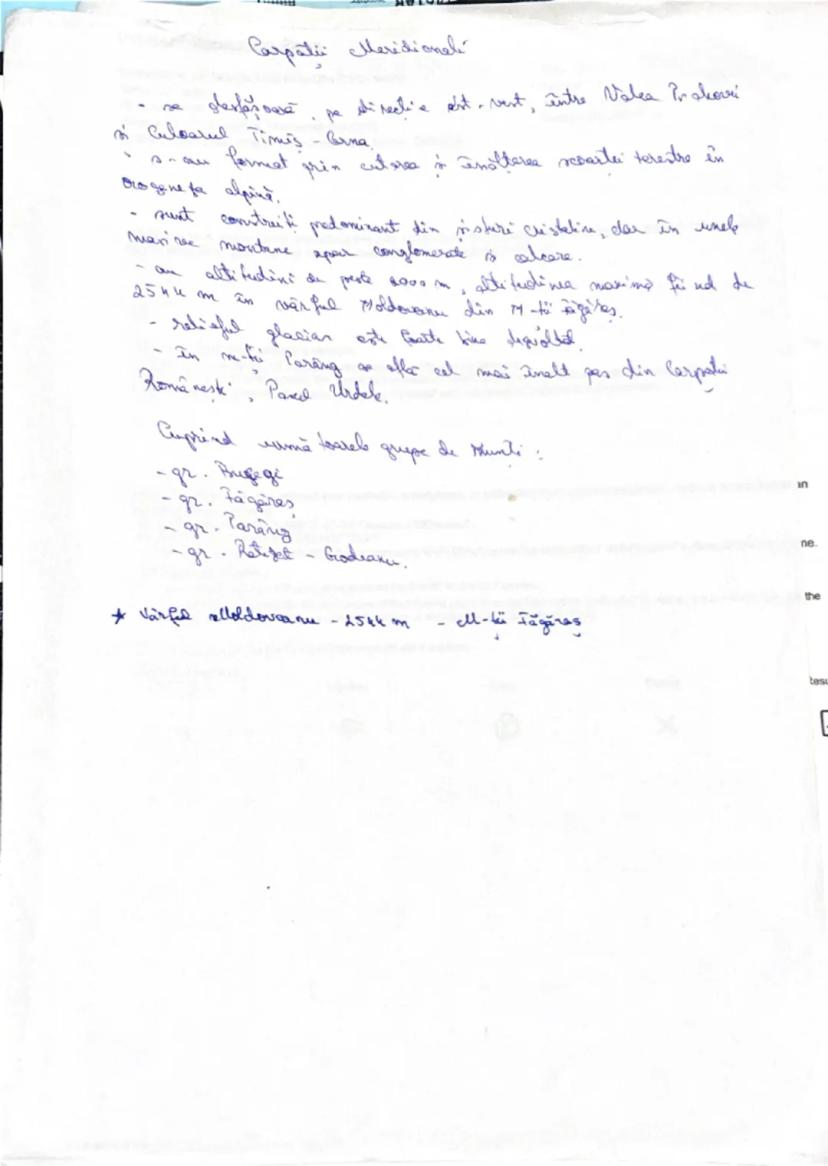 Carpații Meridionali
- se desfășoară pe direcție est-vest, între Valea Prahovei
și Culoarul Timiș - Cerna.
- s-au format prin cutarea și înălțarea scoarței terestre în
orogeneza alpină.
- sunt construiți predominant din șisturi cristaline, dar în unele
masive montane apar conglomerate și calcare.
- au altitudini de peste 2000 m, altitudinea maximă fiind de
2544 m în vârful Moldoveanu din M-ții Făgăraș.
- relieful glaciar este foarte bine dezvoltat.
- în m-ții Parâng se află cel mai înalt pas din Carpații
Românești, Pasul Urdele.
Cuprind următoarele grupe de munți:
- gr. Bucegi
- gr. Făgăraș
- gr. Parâng
- gr. Retezat - Godeanu.
* Vârful Moldoveanu - 2544 m - M-ții Făgăraș
an
ne.
the